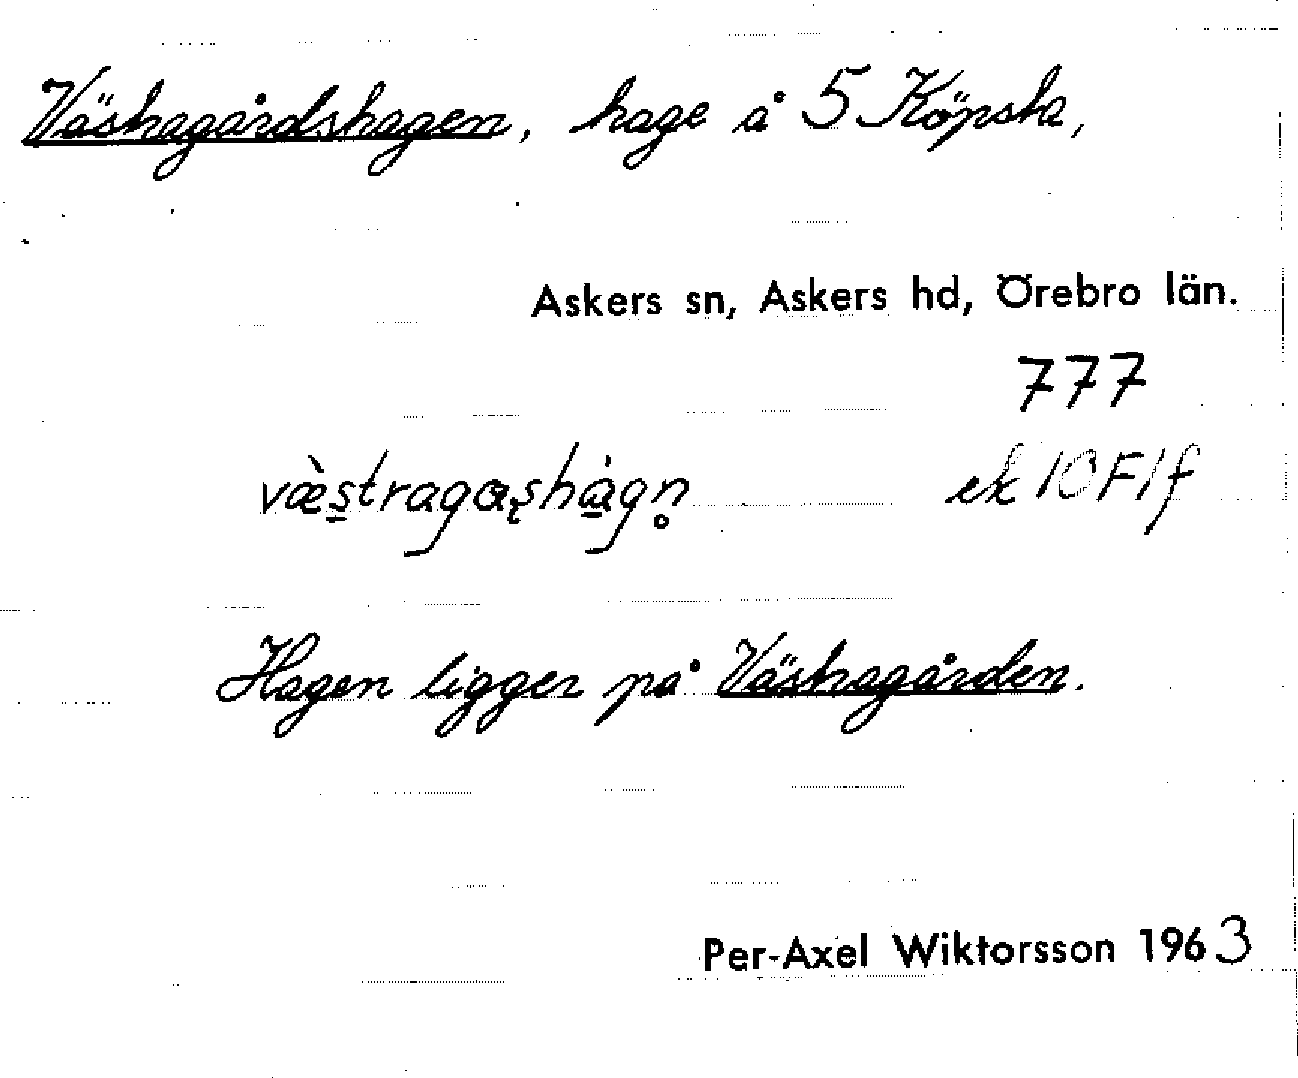 Västragårdshagen, hage å 5 Köpsta,
Askers sn, Askers hd, Örebro län.
777
væ̀s̱tragaꞎshàgn̥
ek 10F1f
Hagen ligger på Västragården.
Per-Axel Wiktorsson 1963